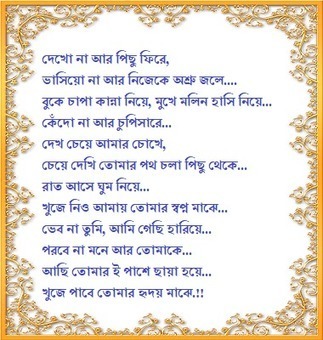 দেখো না আর পিছু ফিরে,
ভাসিয়ো না আর নিজেকে অশ্রু জলে....
বুকে চাপা কান্না নিয়ে, মুখে মলিন হাসি নিয়ে...
কেঁদো না আর চুপিসারে...
দেখ চেয়ে আমার চোখে,
চেয়ে দেখি তোমার পথ চলা পিছু থেকে...
রাত আসে ঘুম নিয়ে...
খুজে নিও আমায় তোমার স্বপ্ন মাঝে...
ভেব না তুমি, আমি গেছি হারিয়ে...
পরবে না মনে আর তোমাকে...
আছি তোমার ই পাশে ছায়া হয়ে...
খুজে পাবে তোমার হৃদয় মাঝে.!!